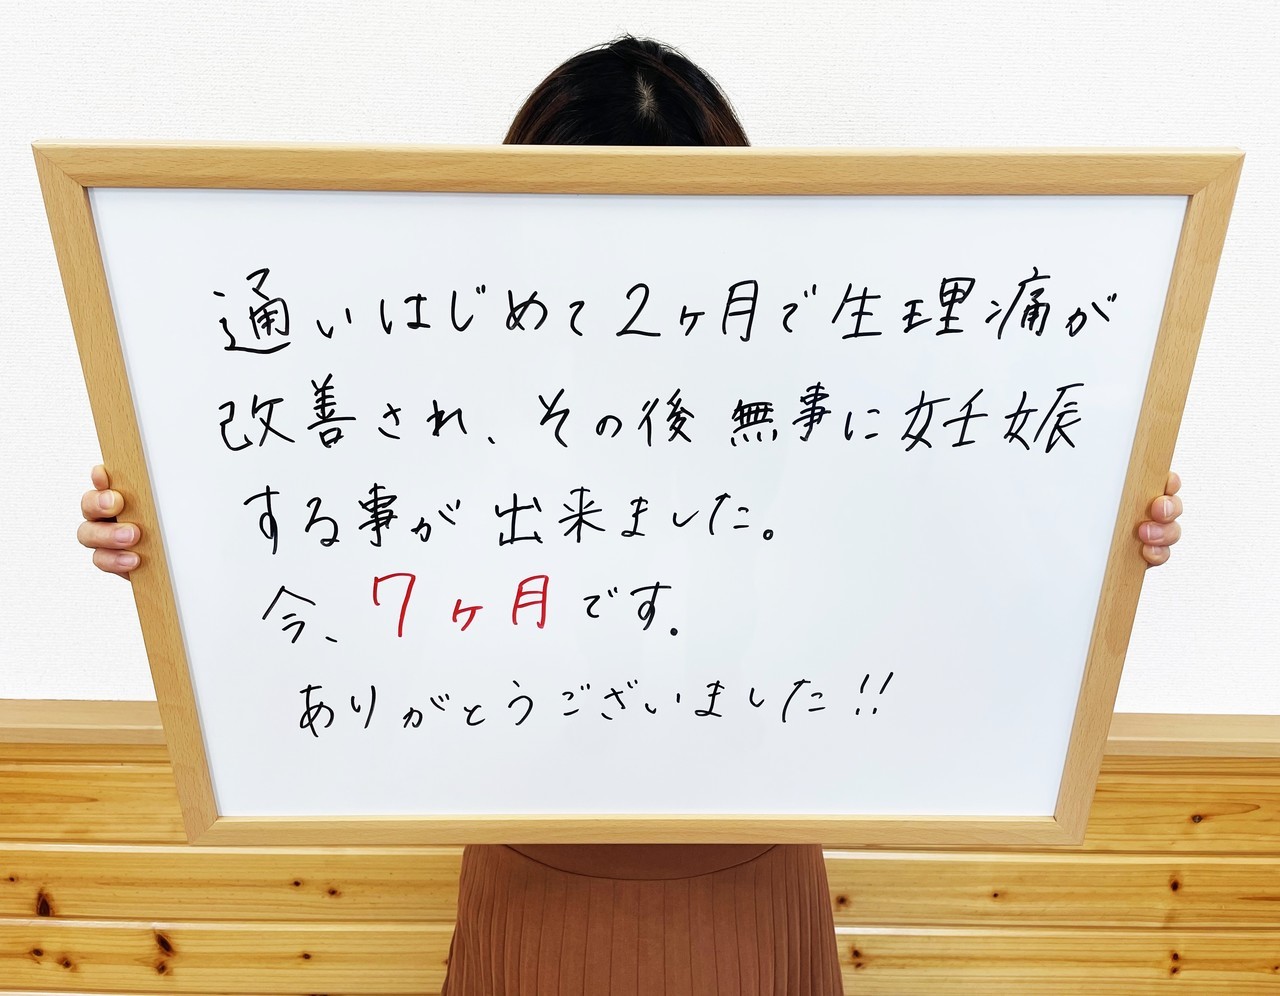 通いはじめて2ヶ月で生理痛が
改善され、その後無事に妊娠
する事が出来ました。
今、7ヶ月です。
ありがとうございました!!